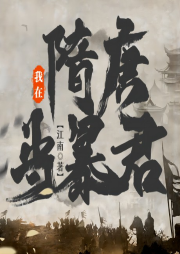 我在
隋唐
当暴君
【江南〇著】